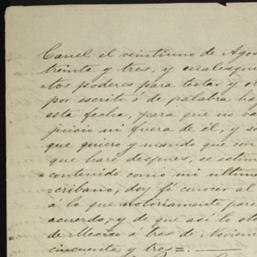 Canel el veintiuno de Agos
treinta y tres, y cualesqui
otros poderes para testar y o
por escrito ó de palabra ha
esta fecha, para que no va
juicio ni fuera de él, y so
que quiero y mando que con
que haré despues, se estim
contenido como mi ultim
scribano, doy fé conocer al
á lo que notoriamente pare
acuerdo; y de que asi lo oto
de á tres de Noviem
cincuenta y tres=.